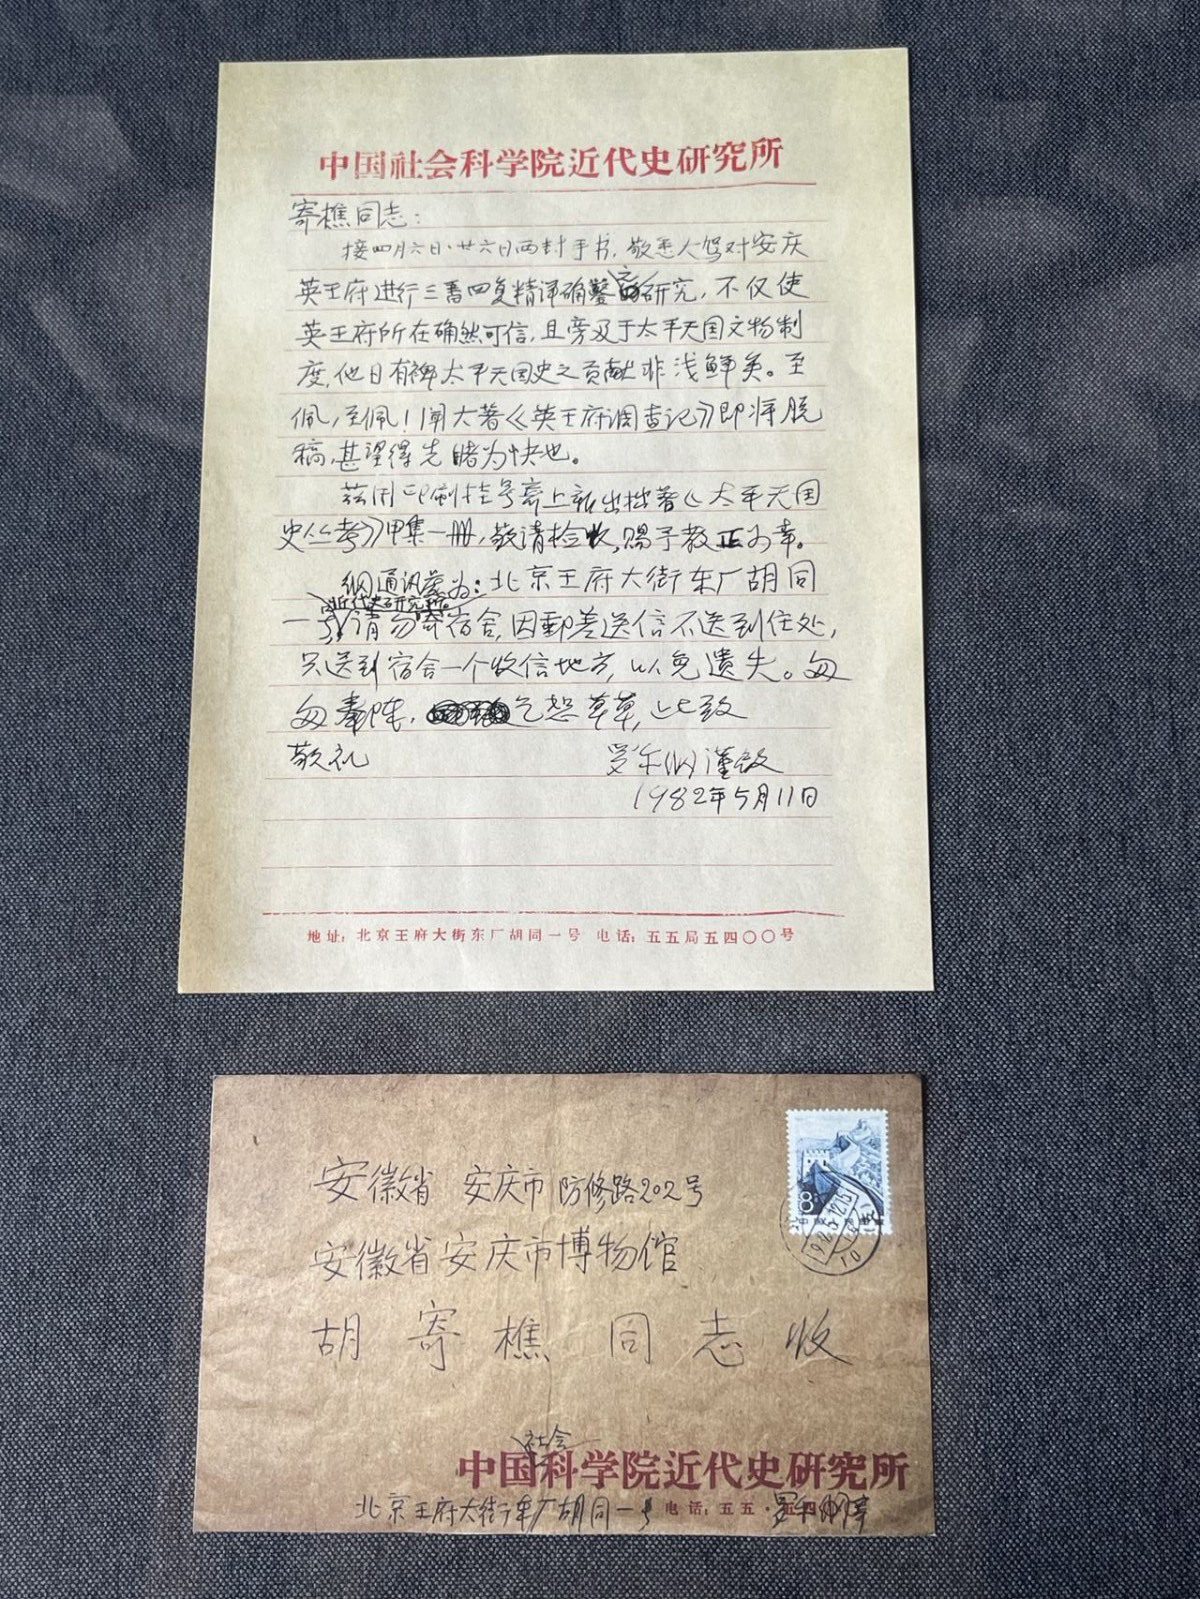 中国社会科学院近代史研究所
寄樵同志：
接四月六日、廿六日两封手书，敬悉大驾对安庆
英王府进行三番四复精详确鑿之研究，不仅使
英王府所在确然可信，且旁及于太平天国文物制
度，他日有裨太平天国史之贡献非浅鲜矣。至
佩，至佩！闻大著《英王府调查记》即将脱
稿，甚望得先睹为快也。
兹用印刷挂号寄上新出拙著《太平天国
史丛考》甲集一册，敬请检收，赐予教正为幸。
纲通讯处为：北京王府大街东厂胡同
近代史研究所
一号，请勿寄宿舍，因邮差送信不送到住处，
只送到宿舍一个收信地方，以免遗失。匆
匆奉陈，乞恕草草，此致
敬礼
罗尔纲谨啟
1982年5月11日
地址：北京王府大街东厂胡同一号 电话：五五局五四〇〇号
8
安徽省 安庆市 防修路202号
安徽省安庆市博物馆
胡寄樵同志收
社会
中国科学院近代史研究所
北京王府大街东厂胡同一号 电话：五五·五四 罗尔纲